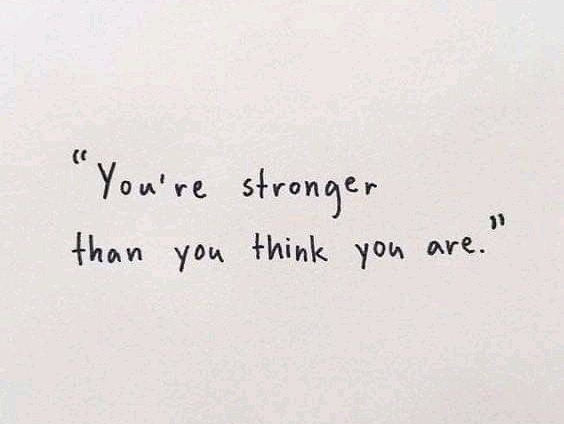 "You're stronger
than you think you are."